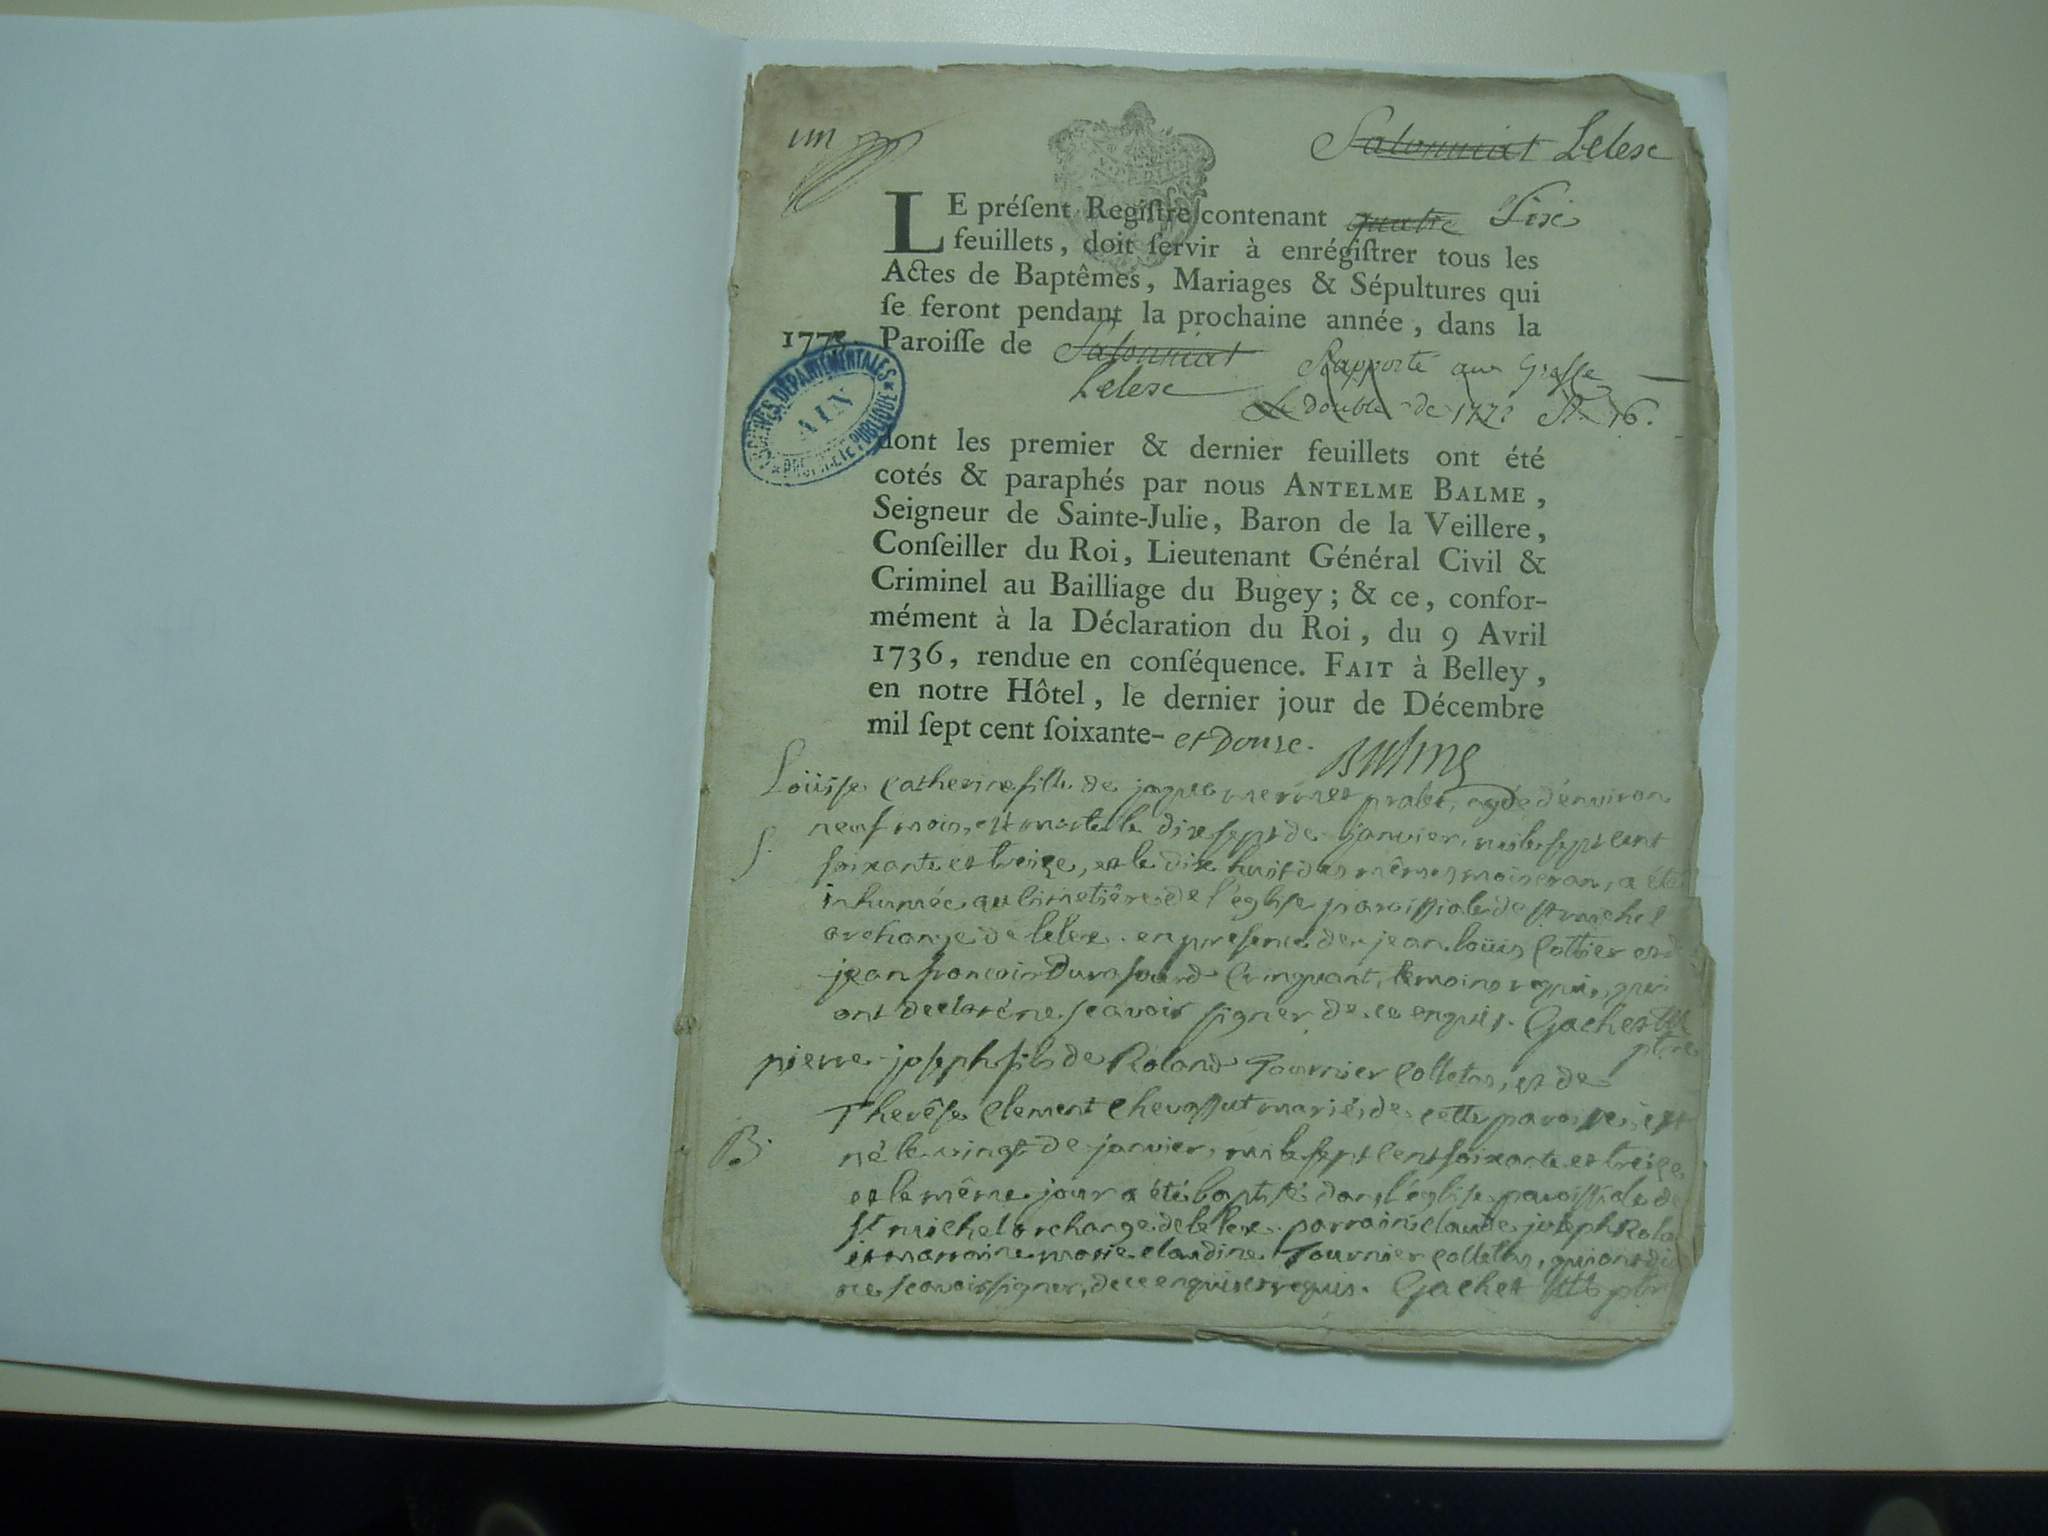 un
Salonniat Lelex
LE préſent Regiſtre contenant quatre Six
feuillets, doit ſervir à enrégiſtrer tous les
Actes de Baptêmes, Mariages & Sépultures qui
ſe feront pendant la prochaine année, dans la
1773. Paroiſſe de Salonniat Rapporté au Greffe
Lelex Le double de 1772
ARCHIVES DÉPARTEMENTALES
AIN
PROPRIÉTÉ PUBLIQUE
dont les premier & dernier feuillets ont été
cotés & paraphés par nous ANTELME BALME,
Seigneur de Sainte-Julie, Baron de la Veillere,
Conſeiller du Roi, Lieutenant Général Civil &
Criminel au Bailliage du Bugey; & ce, confor-
mément à la Déclaration du Roi, du 9 Avril
1736, rendue en conſéquence. FAIT à Belley,
en notre Hôtel, le dernier jour de Décembre
mil ſept cent ſoixante- et douze. Balme
Loüise Catherine fille de jaque mermet pralet, agée d'environ
neuf mois, est morte le dix sept de janvier, mile sept cent
S.
soixante et treize, et le dix huit des mêmes mois et an, a été
inhumée au cimetière de l'église paroissiale de st michel
archange de lelex. en presence de jean loüis Cottier et de
jean francois Durafourd Cinquant, temoins requis, qui
ont declaré ne scavoir signer de ce enquis. Gachet
ptre
pierre joseph fils de Roland Tournier Colletas, et de
Therêse Clement Chevassut mariés de cette paroisse, est
B.
né le vingt de janvier, mile sept cent soixante et treize
et le même jour a été baptisé dans l'église paroissiale de
st michel archange de lelex. parrain claude joseph
et marraine marie claudine Tournier Colletas, qui ont dit
ne scavoir signer, de ce enquis et requis. Gachet ptre